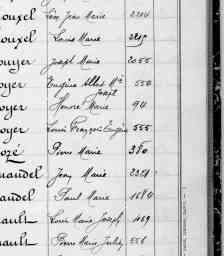 ouxel Léon Jean Marie 2204
ouxel Louis Marie
ouyer Joseph Marie 2055
oyer Eugène Albert Mie Joseph 550
oyer Honoré Marie 94
oyer Louis François Eugène 555
ozé Pierre Marie 380
uaudel Jean Marie 2381
uaudel Paul Marie 1684
uault Louis Marie Joseph 1069
uault Pierre Marie 556